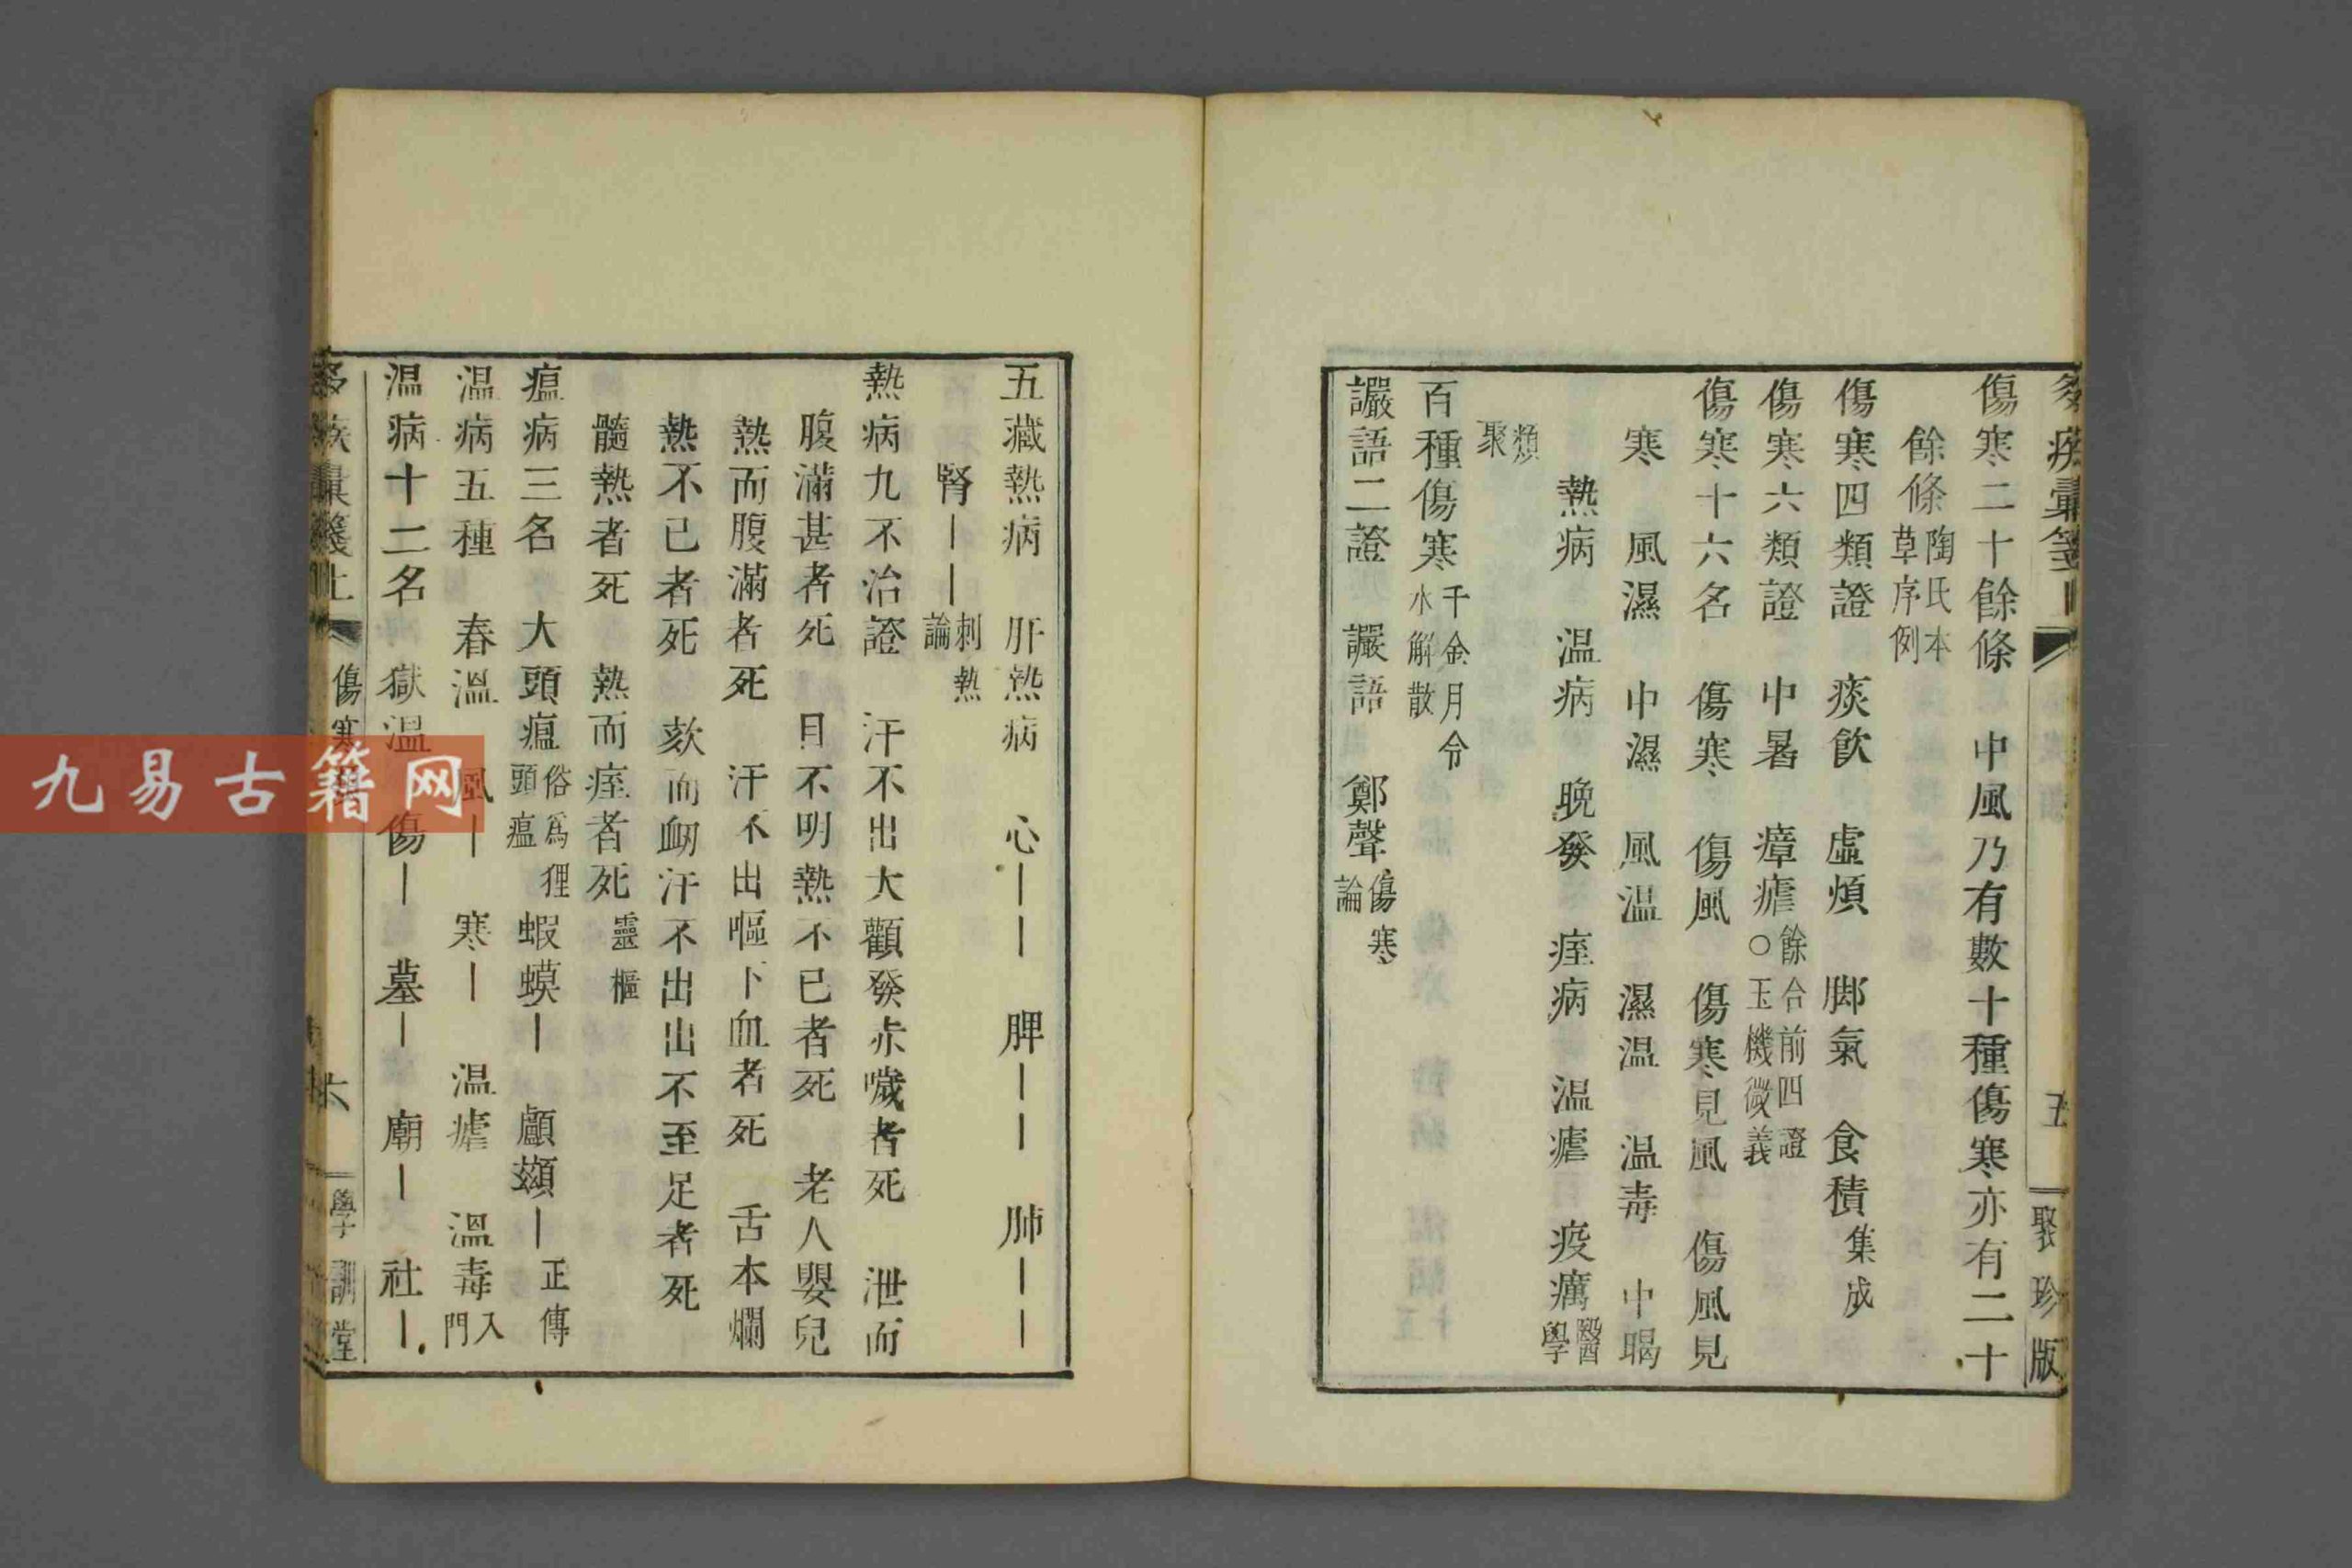 傷寒二十餘條　中風乃有數十種傷寒亦有二十
餘條陶氏本草序例
傷寒四類證　痰飲　虛煩　脚氣　食積集成
傷寒六類證　中暑　瘴瘧餘合前四證○玉機微義
傷寒十六名　傷寒　傷風　傷寒見風　傷風見
寒　風濕　中濕　風温　濕温　温毒　中暍
熱病　温病　晚發　痓病　温瘧　疫癘醫學
類聚
百種傷寒千金月令水解散
讝語二證　讝語　鄭聲傷寒論
五　聚珍版
五藏熱病　肝熱病　心｜｜　脾｜｜　肺｜｜
腎｜｜刺熱論
熱病九不治證　汗不出大顴發赤噦者死　泄而
腹滿甚者死　目不明熱不已者死　老人嬰兒
熱而腹滿者死　汗不出嘔下血者死　舌本爛
熱不已者死　欬而衄汗不出出不至足者死
髓熱者死　熱而痓者死靈樞
瘟病三名　大頭瘟俗爲狸頭瘟　蝦蟆｜　顱䫜｜正傳
温病五種　春溫　風｜　寒｜　温瘧　溫毒入門
温病十二名　獄温　傷｜　墓｜　廟｜　社｜
傷寒　六　學訓堂
九易古籍网